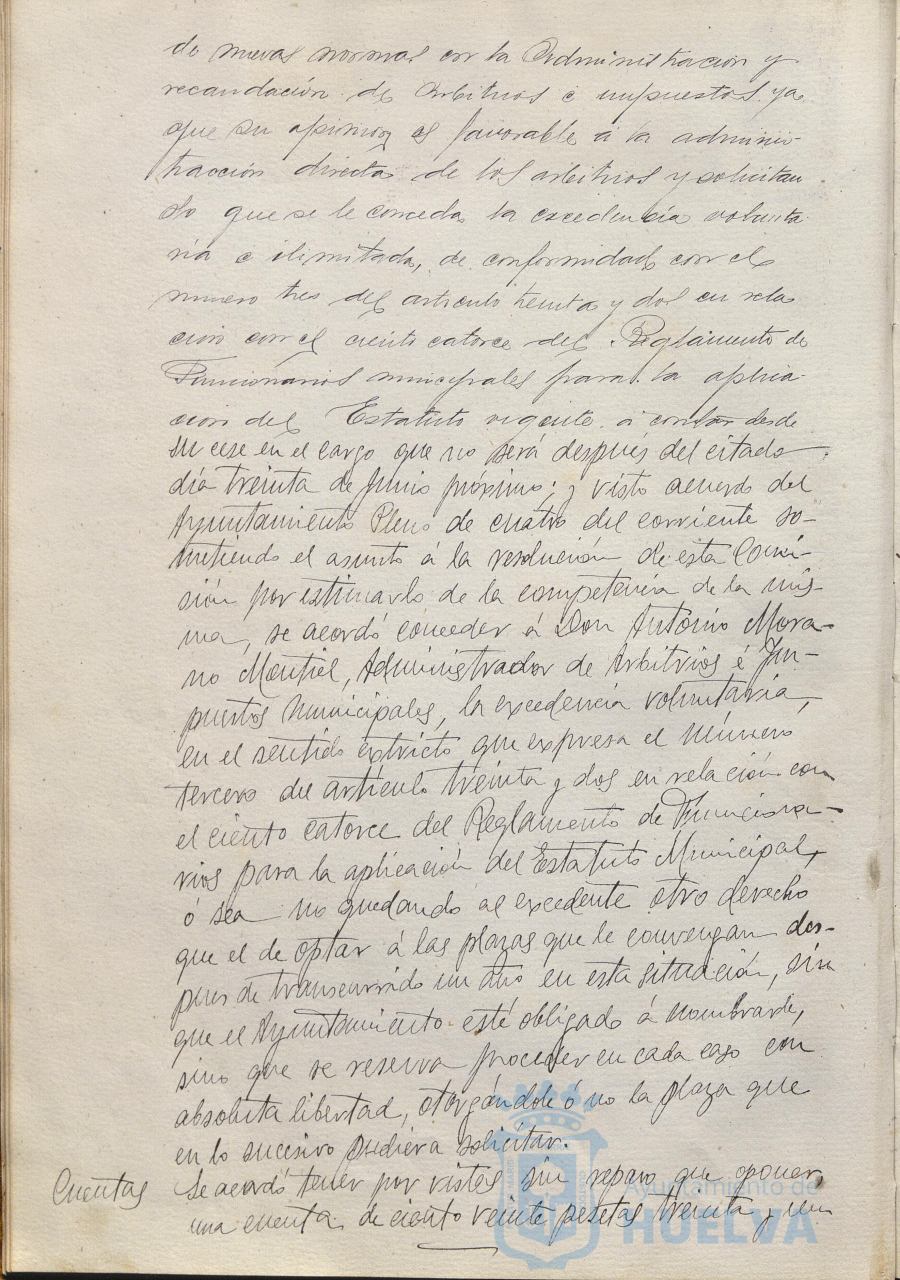 de nuevas normas con la Administración y
recaudación de Arbitrios é impuestos ya
que su opinion es favorable á la adminis-
tracción directa de los arbitrios y solicitan
do que se le conceda la excedencia volunta
ria e ilimitada, de conformidad con el
numero tres del articulo treinta y dos en rela
ción con el ciento catorce del Reglamento de
Funcionarios municipales para la aplica
cion del Estatuto vigente á contar desde
su cese en el cargo que no será después del citado
día treinta de Junio próximo; y visto acuerdo del
Ayuntamiento Pleno de cuatro del corriente so-
metiendo el asunto á la resolución de esta Comi-
sión por estimarlo de la competencia de la mis-
ma, se acordó conceder á Don Antonio Mora-
no Montiel, Administrador de Arbitrios é Im-
puestos Municipales, la excedencia voluntaria,
en el sentido extricto que expresa el número
tercero del artículo treinta y dos en relación con
el ciento catorce del Reglamento de Funciona-
rios para la aplicación del Estatuto Municipal,
ó sea no quedando al excedente otro derecho
que el de optar á las plazas que le convengan des-
pues de transcurrido un año en esta situación, sin
que el Ayuntamiento esté obligado á nombrarle,
sino que se reserva proceder en cada caso con
absoluta libertad, otorgándole ó no la plaza que
en lo sucesivo pudiera solicitar.
Cuentas Se acordó tener por vistas sin reparo que oponer,
una cuenta de ciento veinte pesetas treinta y un
Ayuntamiento de
HUELVA